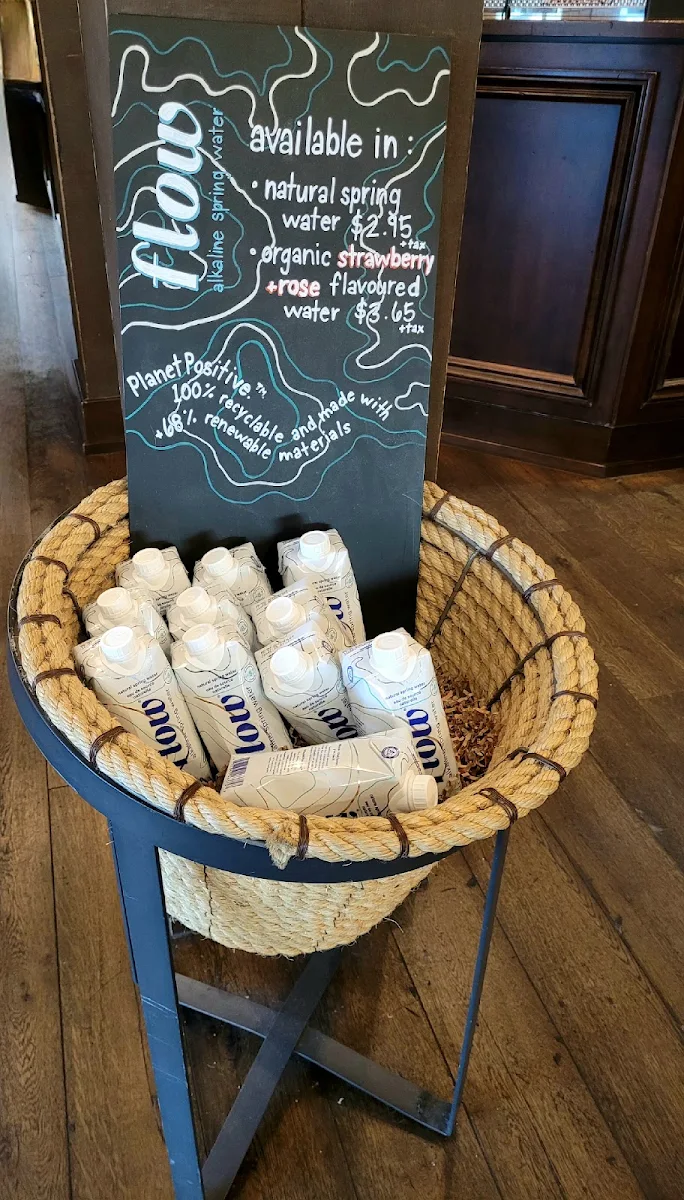 flow
alkaline spring water
available in:
• natural spring
water $2.95
+tax
• organic strawberry
+rose flavoured
water $3.65
+tax
Planet Positive.™
100% recyclable and made with
+68% renewable materials
flow
flow
flow
flow